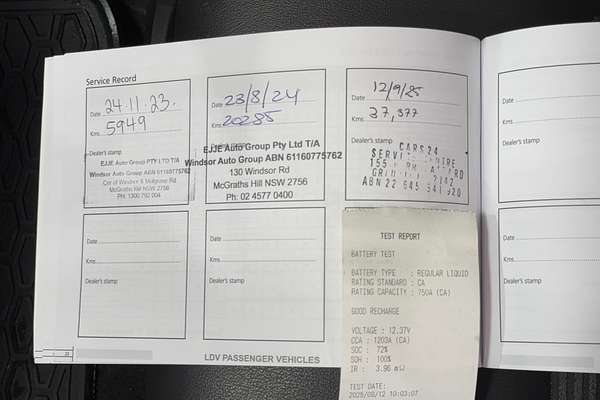 Service Record
Date 24.11.23.
Kms 5949
Dealer's stamp
EJJE Auto Group PTY LTD T/A
Windsor Auto Group ABN 61160775762
Cnr of Windsor & Mulgrave Rd
McGraths Hill NSW 2756
Ph: 1300 792 004
Date 23/8/24
Kms 20285
Dealer's stamp
EJJE Auto Group Pty Ltd T/A
Windsor Auto Group ABN 61160775762
130 Windsor Rd
McGraths Hill NSW 2756
Ph: 02 4577 0400
Date 12/9/25
Kms 37,377
Dealer's stamp
CARS24
155
2142
ABN 22 645 941 920
Date
Kms
Dealer's stamp
Date
Kms
Dealer's stamp
Date
Kms
Dealer's stamp
Date
Kms
Dealer's stamp
LDV PASSENGER VEHICLES
TEST REPORT
BATTERY TEST
BATTERY TYPE : REGULAR LIQUID
RATING STANDARD : CA
RATING CAPACITY : 750A (CA)
GOOD RECHARGE
VOLTAGE : 12.37V
CCA : 1203A (CA)
SOC : 72%
SOH : 100%
IR : 3.96 mΩ
TEST DATE:
2025/09/12 10:03:07